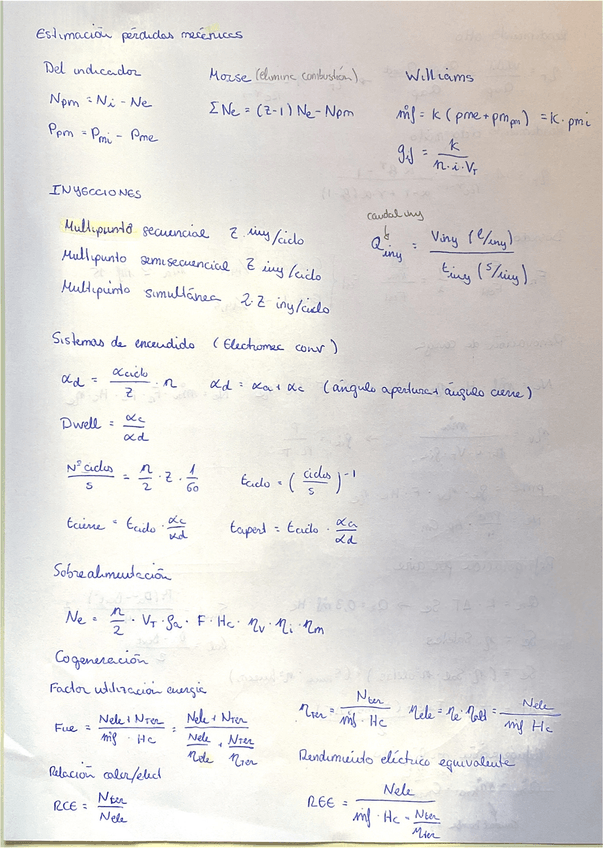 Estimación pérdidas mecánicas
Del indicador
Npm = Ni - Ne
Ppm = Pmi - Pme
Morse (elimina combustión)
ΣNe = (z-1) Ne - Npm
Williams
ṁf = k (pme + pmpm) = K · pmi
gif = k / (n · i · VT)
INYECCIONES
Multipunto secuencial Z iny/ciclo
Multipunto semisecuencial Z iny/ciclo
Multipunto simultánea 2·Z iny/ciclo
caudal iny
↓
Qiny = Viny (l/iny) / tiny (s/iny)
Sistemas de encendido (Electromec conv)
αd = αciclo / Z · n αd = αa + αc (ángulo apertura + ángulo cierre)
Dwell = αc / αd
Nº ciclos / s = n/2 · Z · 1/60 tciclo = (ciclos / s)⁻¹
tcierre = tciclo · αc/αd tapert = tciclo · αa/αd
Sobrealimentación
Ne = n/2 · VT · ρa · F · Hc · ηv · ηi · ηm
Cogeneración
Factor utilización energía
Fue = (Nele + Nter) / (ṁf · Hc) = (Nele + Nter) / (Nele/ηele + Nter/ηter)
ηter = Nter / (ṁf · Hc) ηele = ηe · ηalt = Nele / (ṁf Hc)
Relación calor/elect
RCE = Nter / Nele
Rendimiento eléctrico equivalente
REE = Nele / (ṁf · Hc - Nter/ηter)